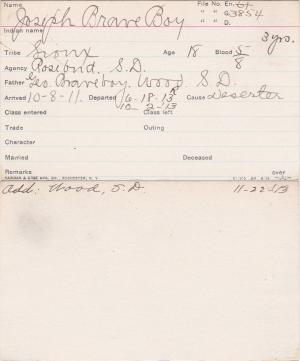 Name File No. En.
Joseph Brave Boy " " 3854
Indian name " " D.
3 yrs.
Tribe Sioux Age 18 Blood 5/8
Agency Rosebud, S.D.
Father Geo. Braveboy, Wood, S.D.
Arrived 10-8-11. Departed 6-18-13 Cause Deserter
10-2-13
Class entered Class left
Trade Outing
Character
Married Deceased
Remarks over
Add: Wood, S.D. 11-22-13